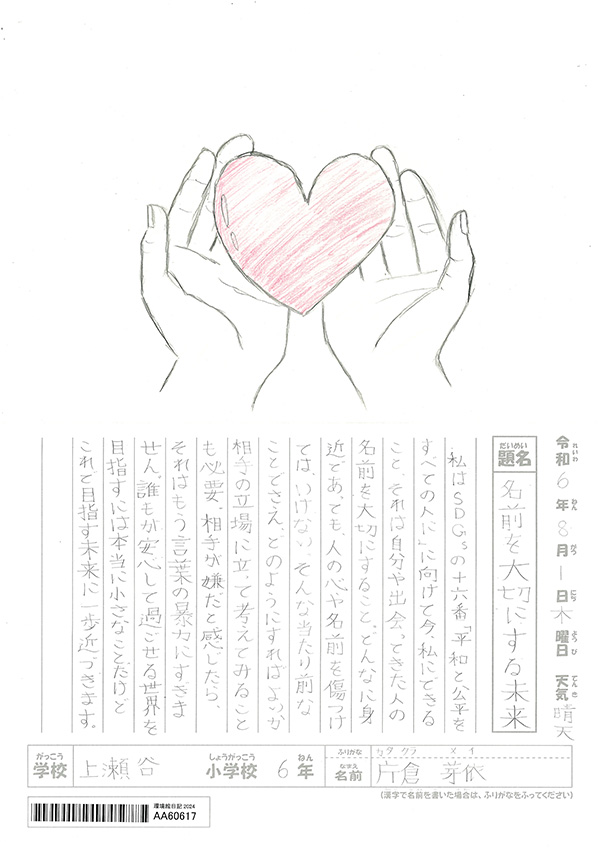 令和6年8月1日木曜日 天気 晴天
れいわ ねん がつ にち ようび てんき
だいめい
題名 名前を大切にする未来
私はSDGsの十六番「平和と公平を
すべての人に」に向けて今、私にできる
こと、それは自分や出会ってきた人の
名前を大切にすること。どんなに身
近であっても、人の心や名前を傷つけ
ては、いけない。そんな当たり前な
ことでさえ、どのようにすればよいか
相手の立場に立って考えてみること
も必要。相手が嫌だと感じたら、
それはもう言葉の暴力にすぎま
せん。誰もが安心して過ごせる世界を
目指すには本当に小さなことだけど
これで目指す未来に一歩近づきます。
がっこう しょうがっこう ねん ふりがな カタ クラ メイ
学校 上瀬谷 小学校 6年 なまえ 名前 片倉 芽依
(漢字で名前を書いた場合は、ふりがなをふってください)
環境絵日記 2024
AA60617